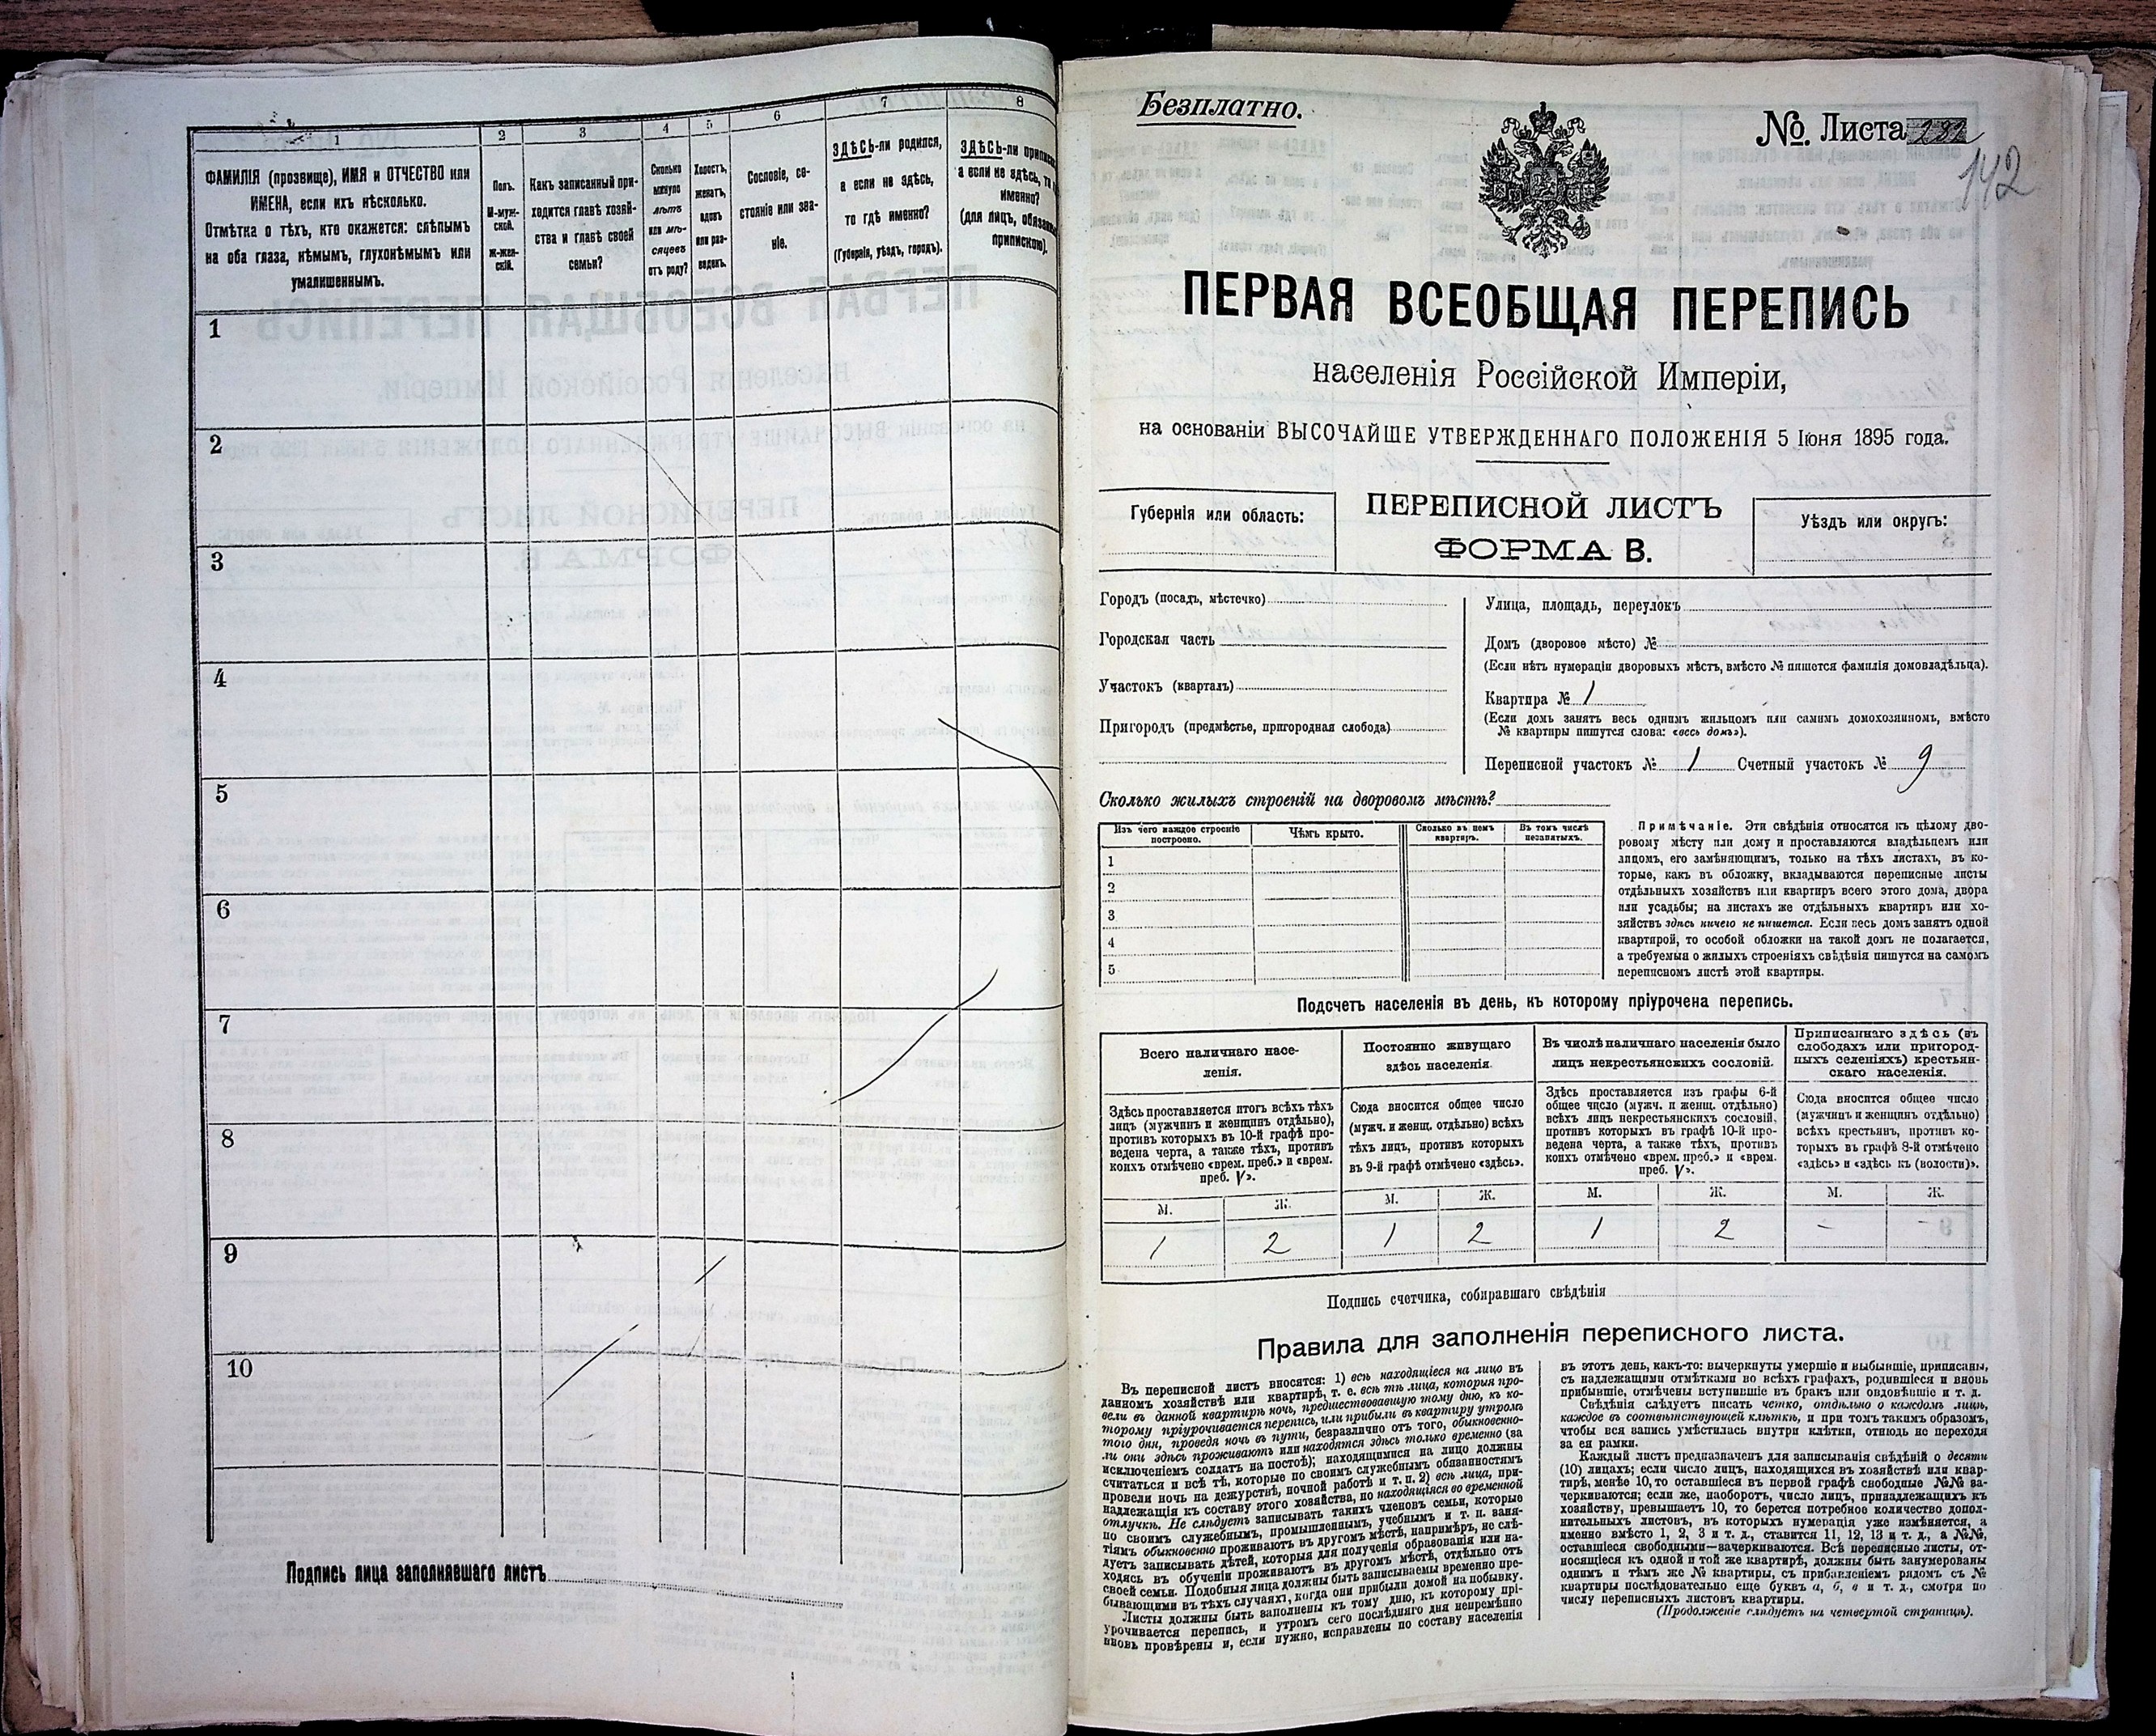 1
2
3
4
5
6
7
8
ФАМИЛІЯ (прозвище), ИМЯ и ОТЧЕСТВО или
ИМЕНА, если ихъ нѣсколько.
Отмѣтка о тѣхъ, кто окажется: слѣпымъ
на оба глаза, нѣмымъ, глухонѣмымъ или
умалишеннымъ.
Полъ.
М-муж-
ской.
Ж-жен-
скій.
Какъ записанный при-
ходится главѣ хозяй-
ства и главѣ своей
семьи?
Сколько
минуло
лѣтъ
или мѣ-
сяцевъ
отъ роду?
Холостъ,
женатъ,
вдовъ
или раз-
веденъ.
Сословіе, со-
стояніе или зва-
ніе.
ЗДѢСЬ-ли родился,
а если не здѣсь,
то гдѣ именно?
(Губернія, уѣздъ, городъ).
ЗДѢСЬ-ли приписа
а если не здѣсь, то
именно?
(для лицъ, обязан
припискою).
1
2
3
4
5
6
7
8
9
10
Подпись лица заполнявшаго листъ
Безплатно.
№ Листа 282
142
ПЕРВАЯ ВСЕОБЩАЯ ПЕРЕПИСЬ
населенія Россійской Имперіи,
на основаніи ВЫСОЧАЙШЕ УТВЕРЖДЕННАГО ПОЛОЖЕНІЯ 5 Іюня 1895 года.
Губернія или область:
ПЕРЕПИСНОЙ ЛИСТЪ
ФОРМА В.
Уѣздъ или округъ:
Городъ (посадъ, мѣстечко)
Городская часть
Участокъ (кварталъ)
Пригородъ (предмѣстье, пригородная слобода)
Улица, площадь, переулокъ
Домъ (дворовое мѣсто) №
(Если нѣтъ нумераціи дворовыхъ мѣстъ, вмѣсто № пишется фамилія домовладѣльца).
Квартира № 1
(Если домъ занятъ весь однимъ жильцомъ или самимъ домохозяиномъ, вмѣсто
№ квартиры пишутся слова: «весь домъ»).
Переписной участокъ № 1 Счетный участокъ № 9
Сколько жилыхъ строеній на дворовомъ мѣстѣ?
Изъ чего каждое строеніе
построено.
Чѣмъ крыто.
Сколько въ немъ
квартиръ.
Въ томъ числѣ
незанятыхъ.
1
2
3
4
5
Примѣчаніе. Эти свѣдѣнія относятся къ цѣлому дво-
ровому мѣсту или дому и проставляются владѣльцемъ или
лицомъ, его замѣняющимъ, только на тѣхъ листахъ, въ ко-
торые, какъ въ обложку, вкладываются переписные листы
отдѣльныхъ хозяйствъ или квартиръ всего этого дома, двора
или усадьбы; на листахъ же отдѣльныхъ квартиръ или хо-
зяйствъ здѣсь ничего не пишется. Если весь домъ занятъ одной
квартирой, то особой обложки на такой домъ не полагается,
а требуемыя о жилыхъ строеніяхъ свѣдѣнія пишутся на самомъ
переписномъ листѣ этой квартиры.
Подсчетъ населенія въ день, къ которому пріурочена перепись.
Всего наличнаго насе-
ленія.
Постоянно живущаго
здѣсь населенія.
Въ числѣ наличнаго населенія было
лицъ некрестьянскихъ сословій.
Приписаннаго здѣсь (въ
слободахъ или пригород-
ныхъ селеніяхъ) крестьян-
скаго населенія.
Здѣсь проставляется итогъ всѣхъ тѣхъ
лицъ (мужчинъ и женщинъ отдѣльно),
противъ которыхъ въ 10-й графѣ про-
ведена черта, а также тѣхъ, противъ
коихъ отмѣчено «врем. преб.» и «врем.
преб. V».
Сюда вносится общее число
(мужч. и женщ. отдѣльно) всѣхъ
тѣхъ лицъ, противъ которыхъ
въ 9-й графѣ отмѣчено «здѣсь».
Здѣсь проставляется изъ графы 6-й
общее число (мужч. и женщ. отдѣльно)
всѣхъ лицъ некрестьянскихъ сословій,
противъ которыхъ въ графѣ 10-й про-
ведена черта, а также тѣхъ, противъ
коихъ отмѣчено «врем. преб.» и «врем.
преб. V».
Сюда вносится общее число
(мужчинъ и женщинъ отдѣльно)
всѣхъ крестьянъ, противъ ко-
торыхъ въ графѣ 8-й отмѣчено
«здѣсь» и «здѣсь къ (волости)».
М. Ж. М. Ж. М. Ж. М. Ж.
1 2 1 2 1 2 - -
Подпись счетчика, собиравшаго свѣдѣнія
Правила для заполненія переписного листа.
Въ переписной листъ вносятся: 1) всѣ находящіеся на лицо въ
данномъ хозяйствѣ или квартирѣ, т. е. всѣ тѣ лица, которыя про-
вели въ данной квартирѣ ночь, предшествовавшую тому дню, къ ко-
торому пріурочивается перепись, или прибыли въ квартиру утромъ
того дня, проведя ночь въ пути, безразлично отъ того, обыкновенно-
ли они здѣсь проживаютъ или находятся здѣсь только временно (за
исключеніемъ солдатъ на постоѣ); находящимися на лицо должны
считаться и всѣ тѣ, которые по своимъ служебнымъ обязанностямъ
провели ночь на дежурствѣ, ночной работѣ и т. п. 2) всѣ лица, при-
надлежащія къ составу этого хозяйства, но находящіяся во временной
отлучкѣ. Не слѣдуетъ записывать такихъ членовъ семьи, которые
по своимъ служебнымъ, промышленнымъ, учебнымъ и т. п. заня-
тіямъ обыкновенно проживаютъ въ другомъ мѣстѣ, напримѣръ, не слѣ-
дуетъ записывать дѣтей, которыя для полученія образованія или на-
ходясь въ обученіи проживаютъ въ другомъ мѣстѣ, отдѣльно отъ
своей семьи. Подобныя лица должны быть записываемы временно пре-
бывающими въ тѣхъ случаяхъ, когда они прибыли домой на побывку.
Листы должны быть заполнены къ тому дню, къ которому прі-
урочивается перепись, и утромъ сего послѣдняго дня непремѣнно
вновь провѣрены и, если нужно, исправлены по составу населенія
въ этотъ день, какъ-то: вычеркнуты умершіе и выбывшіе, приписаны,
съ надлежащими отмѣтками во всѣхъ графахъ, родившіеся и вновь
прибывшіе, отмѣчены вступившіе въ бракъ или овдовѣвшіе и т. д.
Свѣдѣнія слѣдуетъ писать четко, отдѣльно о каждомъ лицѣ,
каждое въ соотвѣтствующей клѣткѣ, и при томъ такимъ образомъ,
чтобы вся запись умѣстилась внутри клѣтки, отнюдь не переходя
за ея рамки.
Каждый листъ предназначенъ для записыванія свѣдѣній о десяти
(10) лицахъ; если число лицъ, находящихся въ хозяйствѣ или квар-
тирѣ, менѣе 10, то оставшіеся въ первой графѣ свободные №№ за-
черкиваются; если же, наоборотъ, число лицъ, принадлежащихъ къ
хозяйству, превышаетъ 10, то берется потребное количество допол-
нительныхъ листовъ, въ которыхъ нумерація уже измѣняется, а
именно вмѣсто 1, 2, 3 и т. д., ставится 11, 12, 13 и т. д., а №№,
оставшіеся свободными—зачеркиваются. Всѣ переписные листы, от-
носящіеся къ одной и той же квартирѣ, должны быть занумерованы
однимъ и тѣмъ же № квартиры, съ прибавленіемъ рядомъ съ №
квартиры послѣдовательно еще буквъ а, б, в и т. д., смотря по
числу переписныхъ листовъ квартиры.
(Продолженіе слѣдуетъ на четвертой страницѣ).